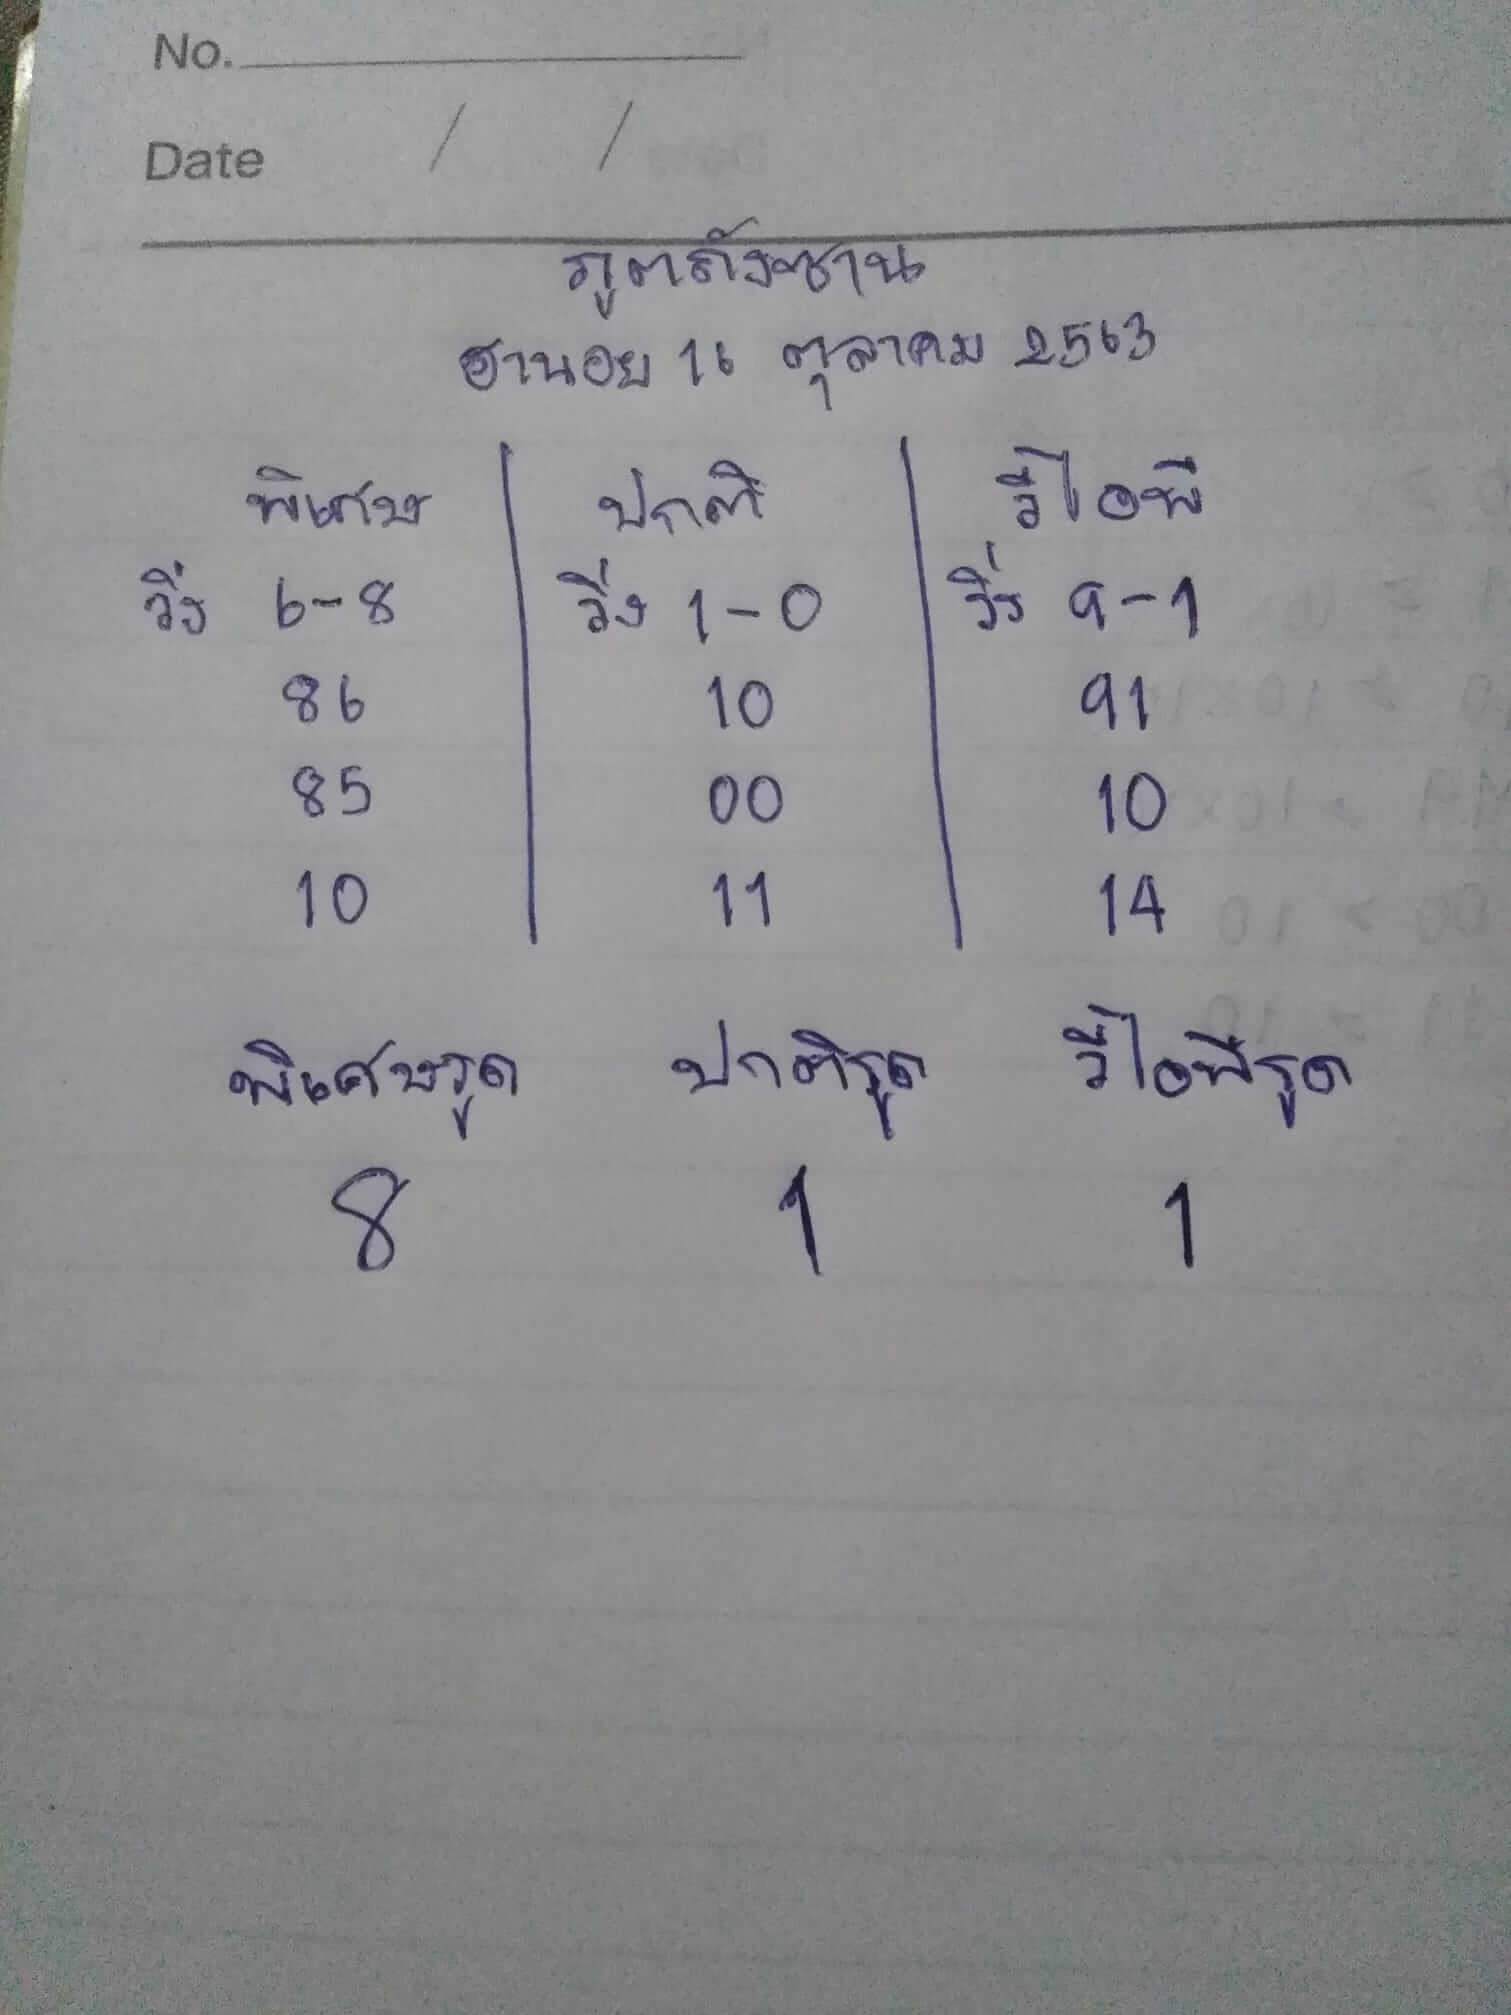 No.
Date / /
ภูตถังซาน
ฮานอย 16 ตุลาคม 2563
พิเศษ ปกติ วีไอพี
วิ่ง 6-8 วิ่ง 1-0 วิ่ง 9-1
86 10 91
85 00 10
10 11 14
พิเศษรูด ปกติรูด วีไอพีรูด
8 1 1